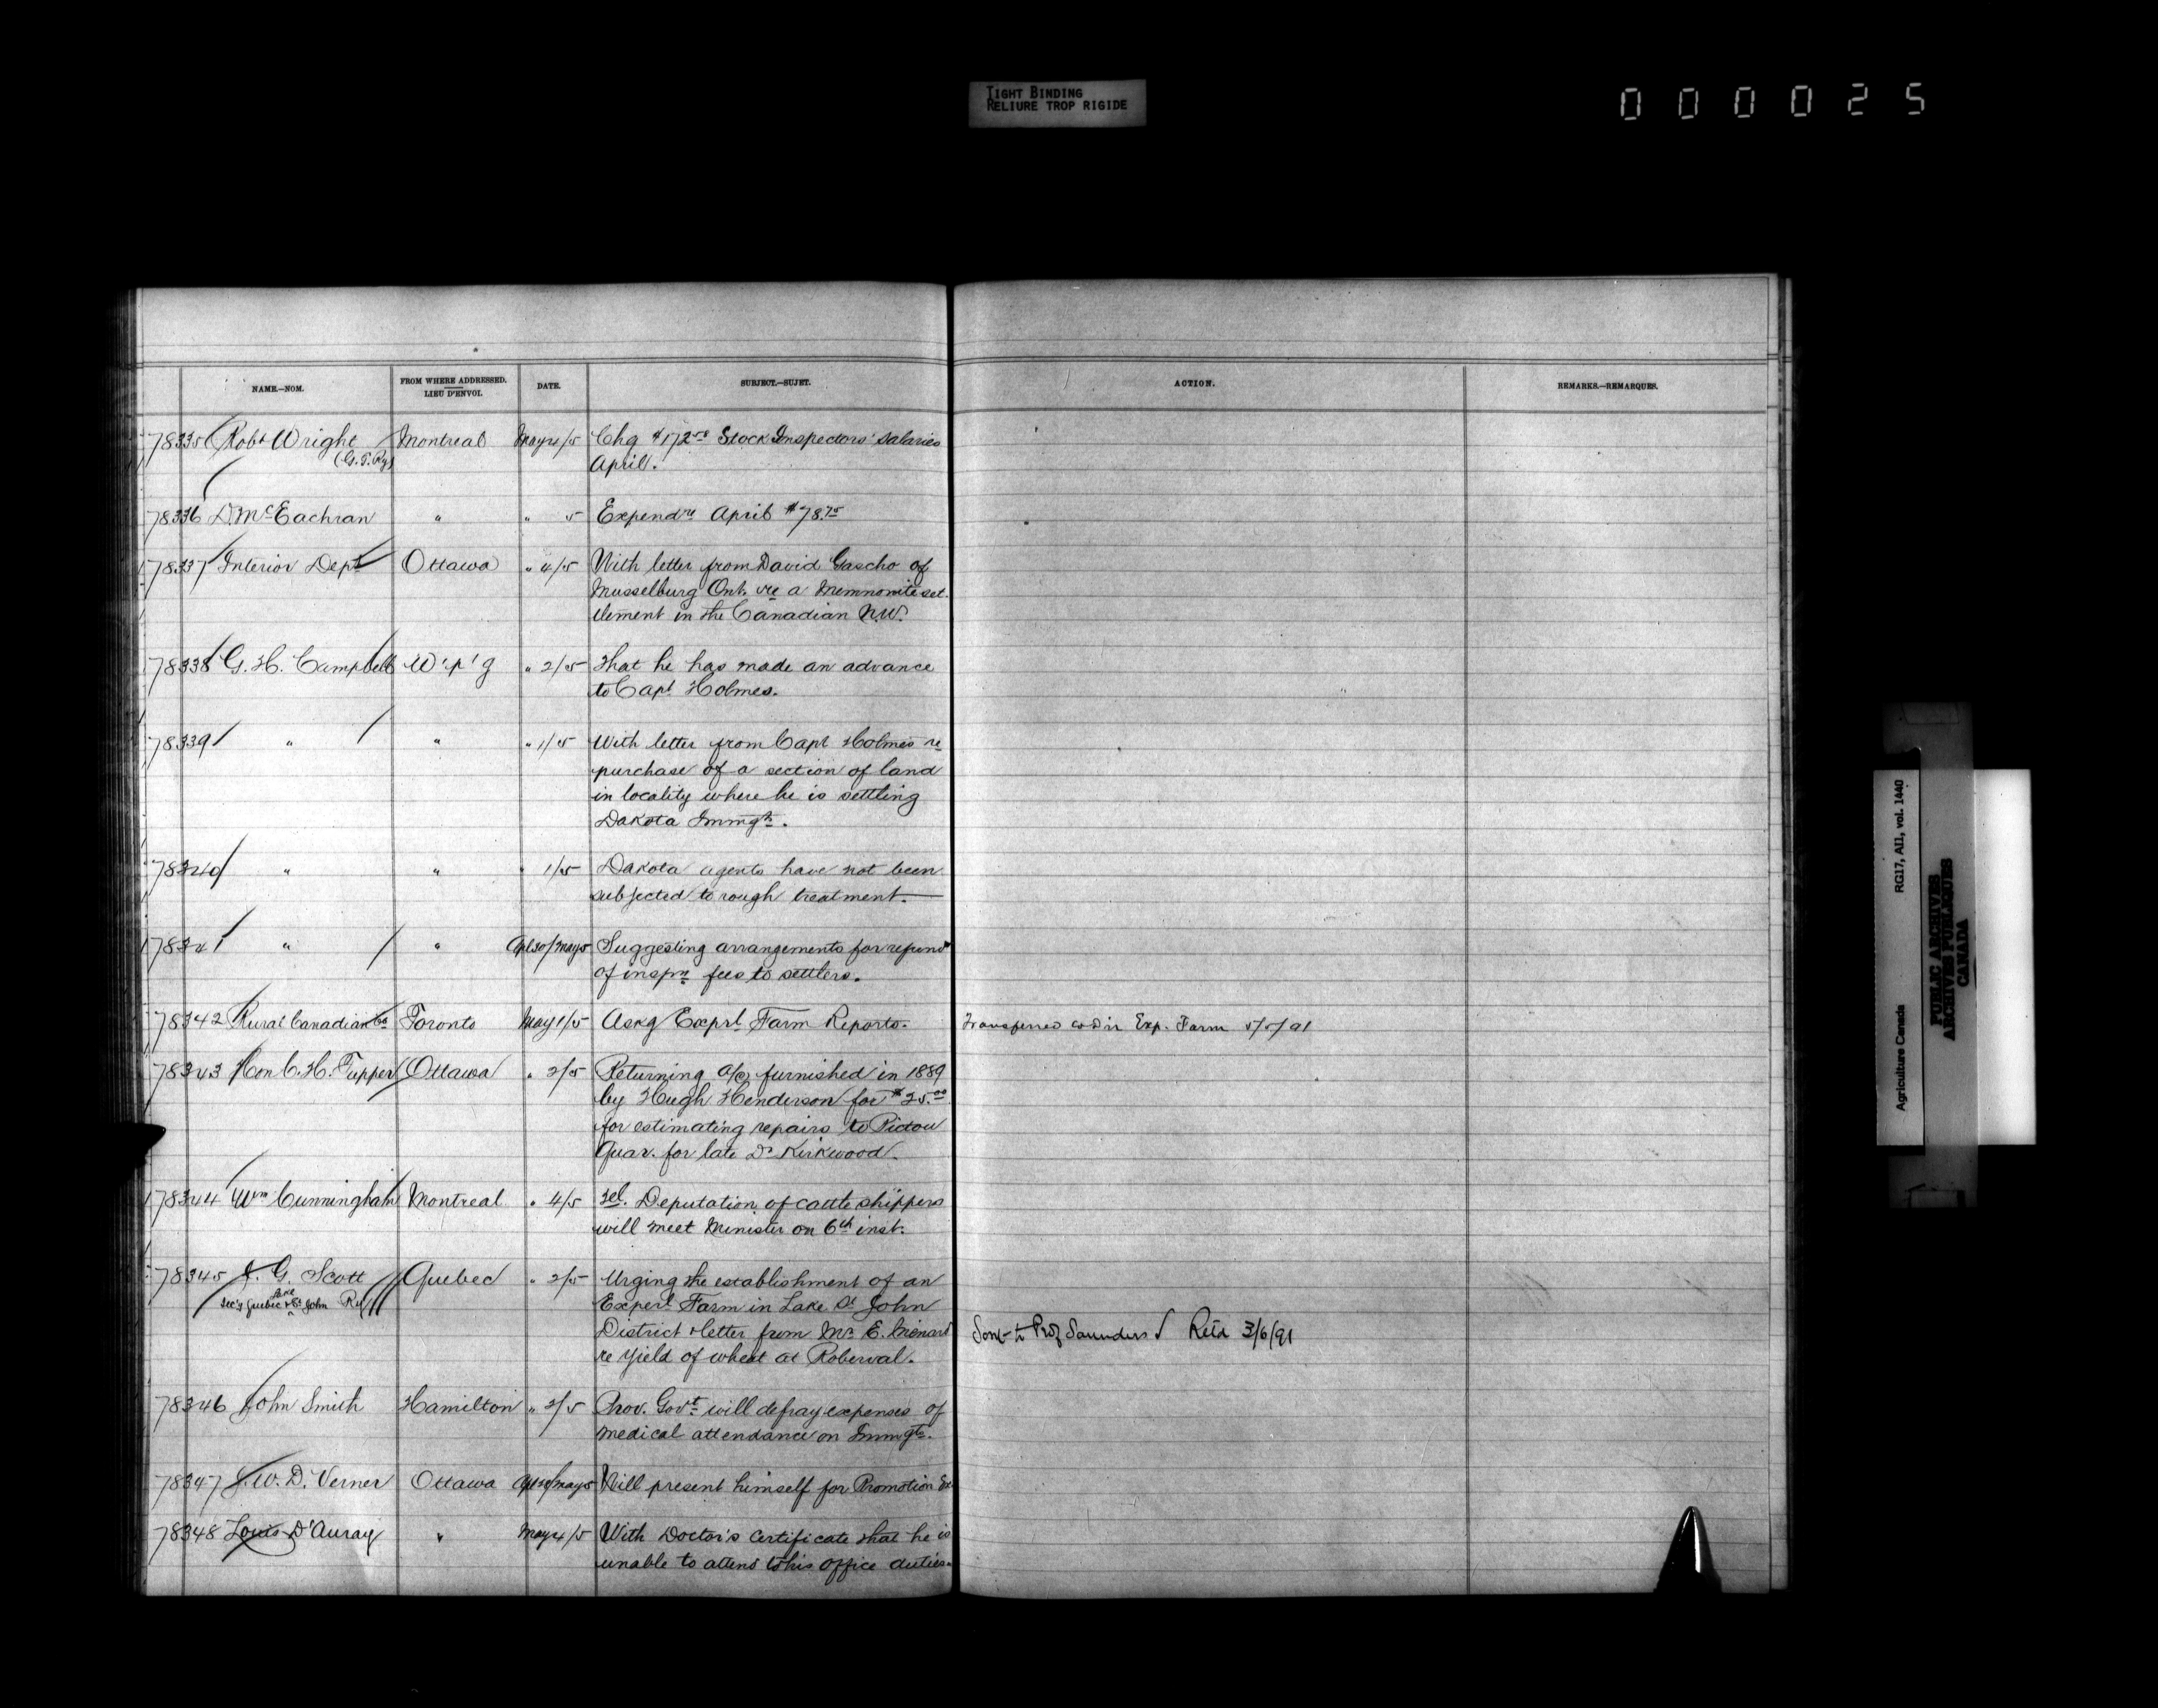 TIGHT BINDING
RELIURE TROP RIGIDE
000025
NAME.—NOM. FROM WHERE ADDRESSED. LIEU D'ENVOI. DATE. SUBJECT.—SUJET. ACTION. REMARKS.—REMARQUES.
78335 Robt Wright Montreal May 4/5 Chg $172 50 Stock Inspectors' salaries
(G.T.Ry) April.
78336 D. McEachran " " 5 Expendre April $78.75
78337 Interior Dept Ottawa " 4/5 With letter from David Gascho of
Musselburg Ont. re a Memnonite set-
tlement in the Canadian N.W.
78338 G. H. Campbell W'p'g " 2/5 That he has made an advance
to Capt Holmes.
78339 " " " 1/5 With letter from Capt Holmes re
purchase of a section of land
in locality where he is settling
Dakota Immgts.
78340 " " " 1/5 Dakota agents have not been
subjected to rough treatment.
78341 " " Apl 30/May 5 Suggesting arrangements for refund
of inspn fees to settlers.
78342 Rural Canadian Co Toronto May 1/5 Askg Exprl Farm Reports. Transferred to Dir Exp. Farm 5/5/91
78343 Hon C. H. Tupper Ottawa " 2/5 Returning a/c furnished in 1889
by Hugh Henderson for $25.00
for estimating repairs to Pictou
Quar. for late Dr Kirkwood.
78344 Wm Cunningham Montreal " 4/5 Tel. Deputation of cattle shippers
will meet Minister on 6th inst.
78345 J. G. Scott Quebec " 2/5 Urging the establishment of an
Sec'y Quebec & Lake St John Ry Experl Farm in Lake St John
District & letter from Mr E. Menard Sent to Prof Saunders Retd 3/6/91
re yield of wheat at Roberval.
78346 John Smith Hamilton " 2/5 Prov. Govt will defray expenses of
medical attendance on Immgts.
78347 J. W. D. Verner Ottawa Apl 30/May 5 Will present himself for Promotion Ex
78348 Louis D'Auray " May 4/5 With Doctor's Certificate that he is
unable to attend to his office duties.
Agriculture Canada RG17, AI1, vol. 1440
PUBLIC ARCHIVES
ARCHIVES PUBLIQUES
CANADA